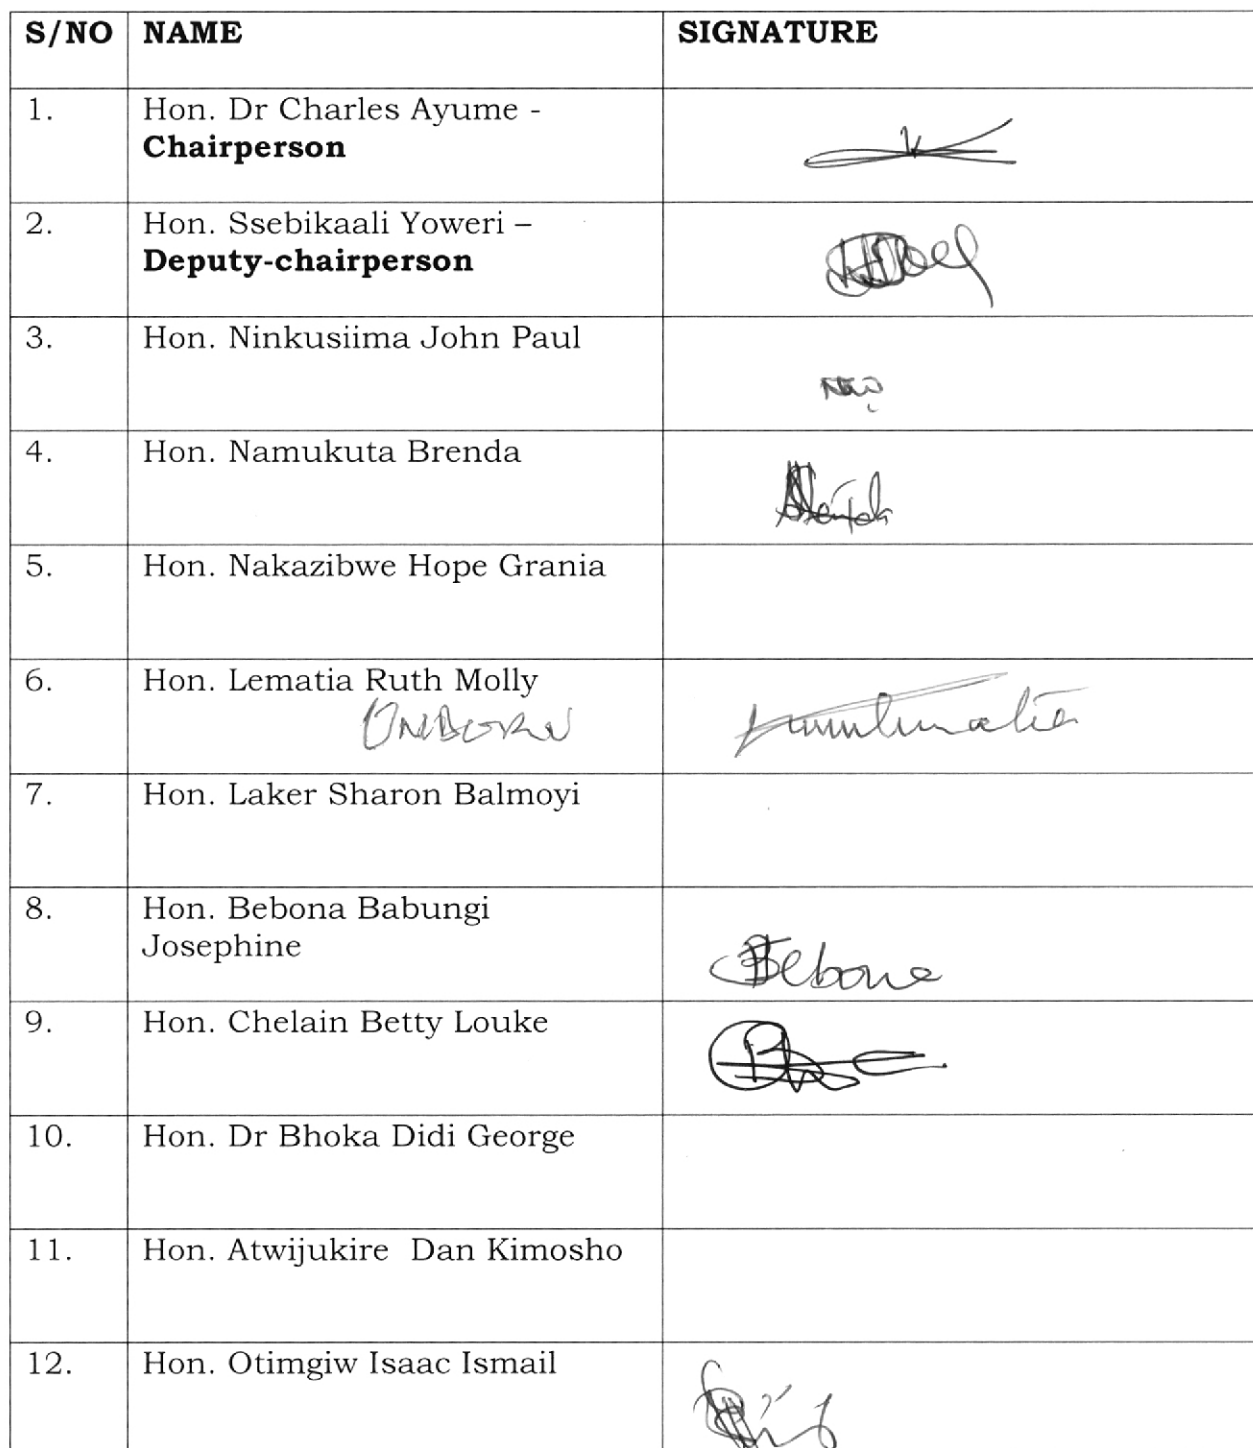 S/NO NAME SIGNATURE
1. Hon. Dr Charles Ayume -
Chairperson
2. Hon. Ssebikaali Yoweri –
Deputy-chairperson
3. Hon. Ninkusiima John Paul
4. Hon. Namukuta Brenda
5. Hon. Nakazibwe Hope Grania
6. Hon. Lematia Ruth Molly
7. Hon. Laker Sharon Balmoyi
8. Hon. Bebona Babungi
Josephine
Bebona
9. Hon. Chelain Betty Louke
10. Hon. Dr Bhoka Didi George
11. Hon. Atwijukire Dan Kimosho
12. Hon. Otimgiw Isaac Ismail